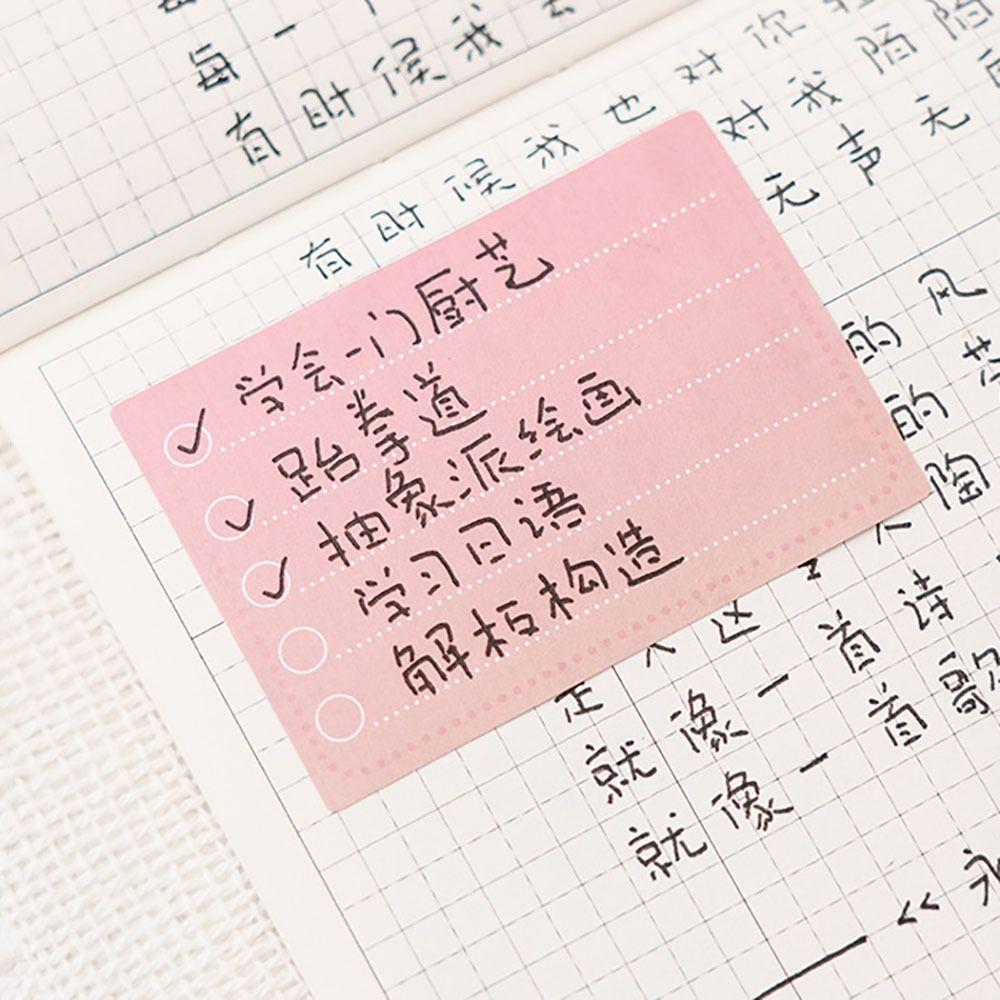 每一
有时候我会
有时候我也对你
对我陌陌
无声无
学会一门厨艺
跆拳道
抽象派绘画
学习日语
解析构造
的风
的
陶
这
就像一首诗
就像一首歌
<<永